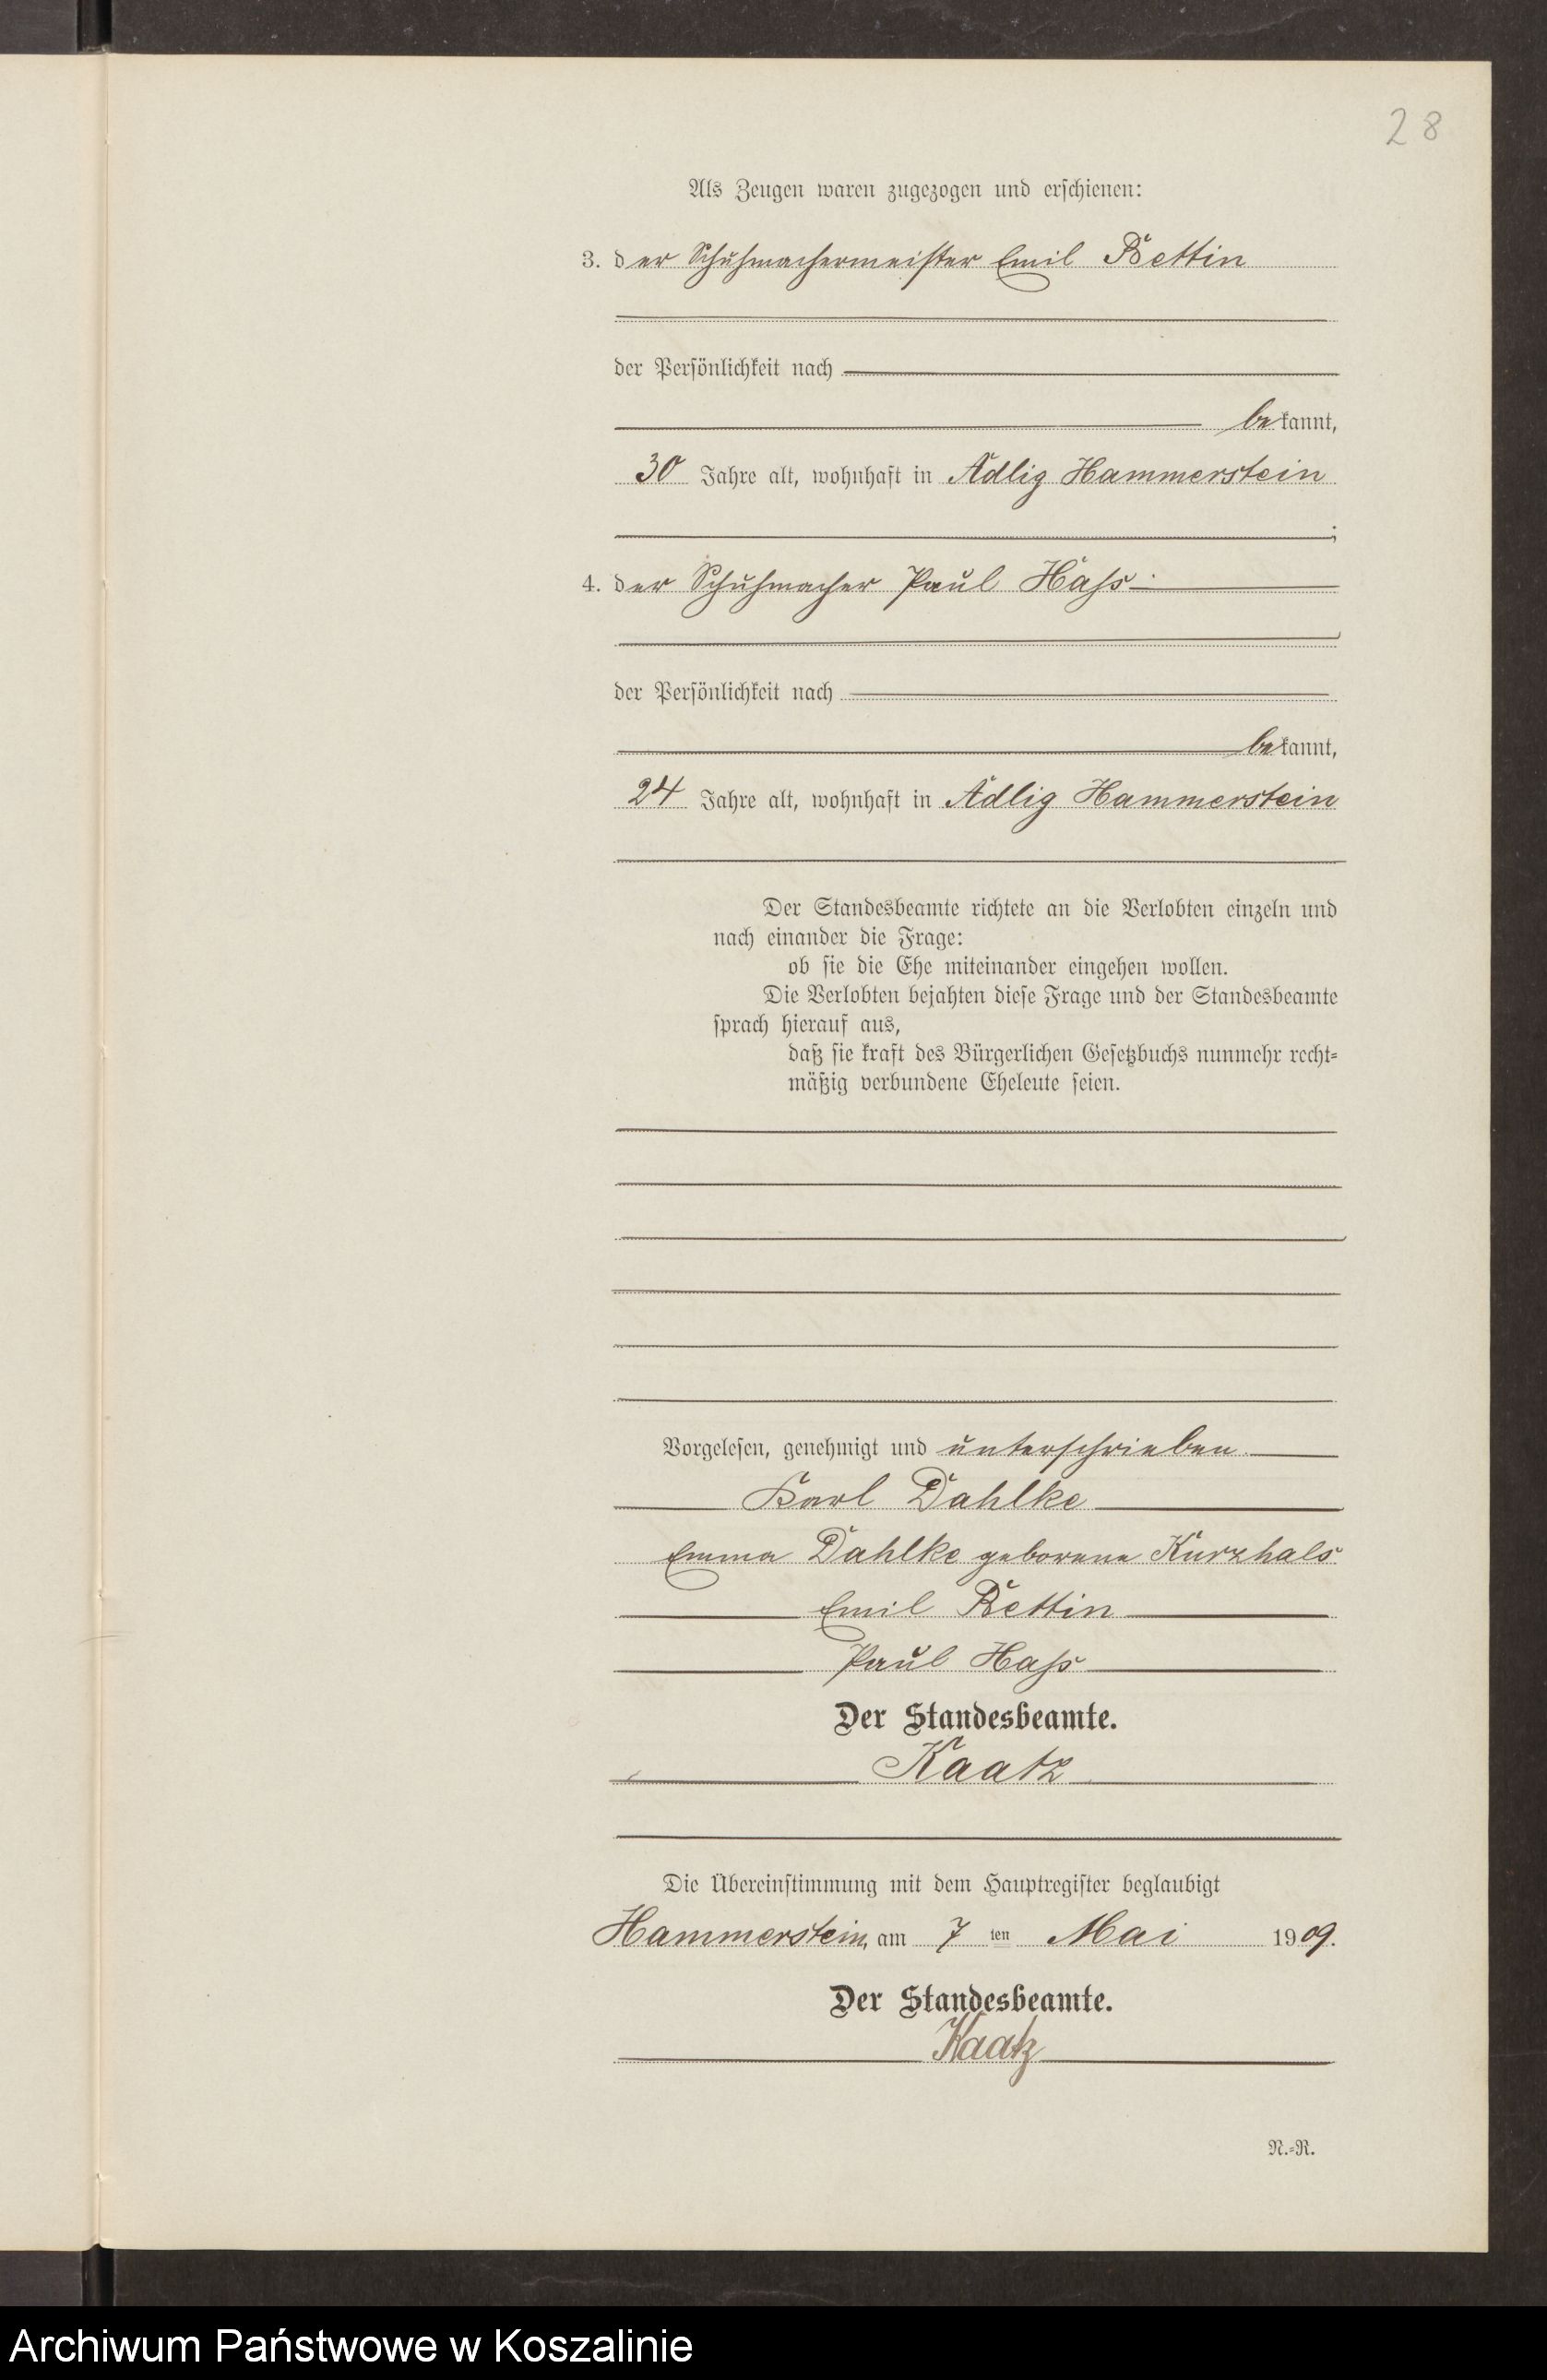 28
Als Zeugen waren zugezogen und erschienen:
3. der Schuhmachermeister Emil Bettin
der Persönlichkeit nach
bekannt,
30 Jahre alt, wohnhaft in Adlig Hammerstein
;
4. der Schuhmacher Paul Haß
der Persönlichkeit nach
bekannt,
24 Jahre alt, wohnhaft in Adlig Hammerstein
Der Standesbeamte richtete an die Verlobten einzeln und
nach einander die Frage:
ob sie die Ehe miteinander eingehen wollen.
Die Verlobten bejahten diese Frage und der Standesbeamte
sprach hierauf aus,
daß sie kraft des Bürgerlichen Gesetzbuchs nunmehr recht-
mäßig verbundene Eheleute seien.
Vorgelesen, genehmigt und unterschrieben
Karl Dahlke
Emma Dahlke geborene Kurzhals
Emil Bettin
Paul Haß
Der Standesbeamte.
Kaatz
Die Übereinstimmung mit dem Hauptregister beglaubigt
Hammerstein, am 7 ten Mai 1909.
Der Standesbeamte.
Kaatz
N.-R.
Archiwum Państwowe w Koszalinie